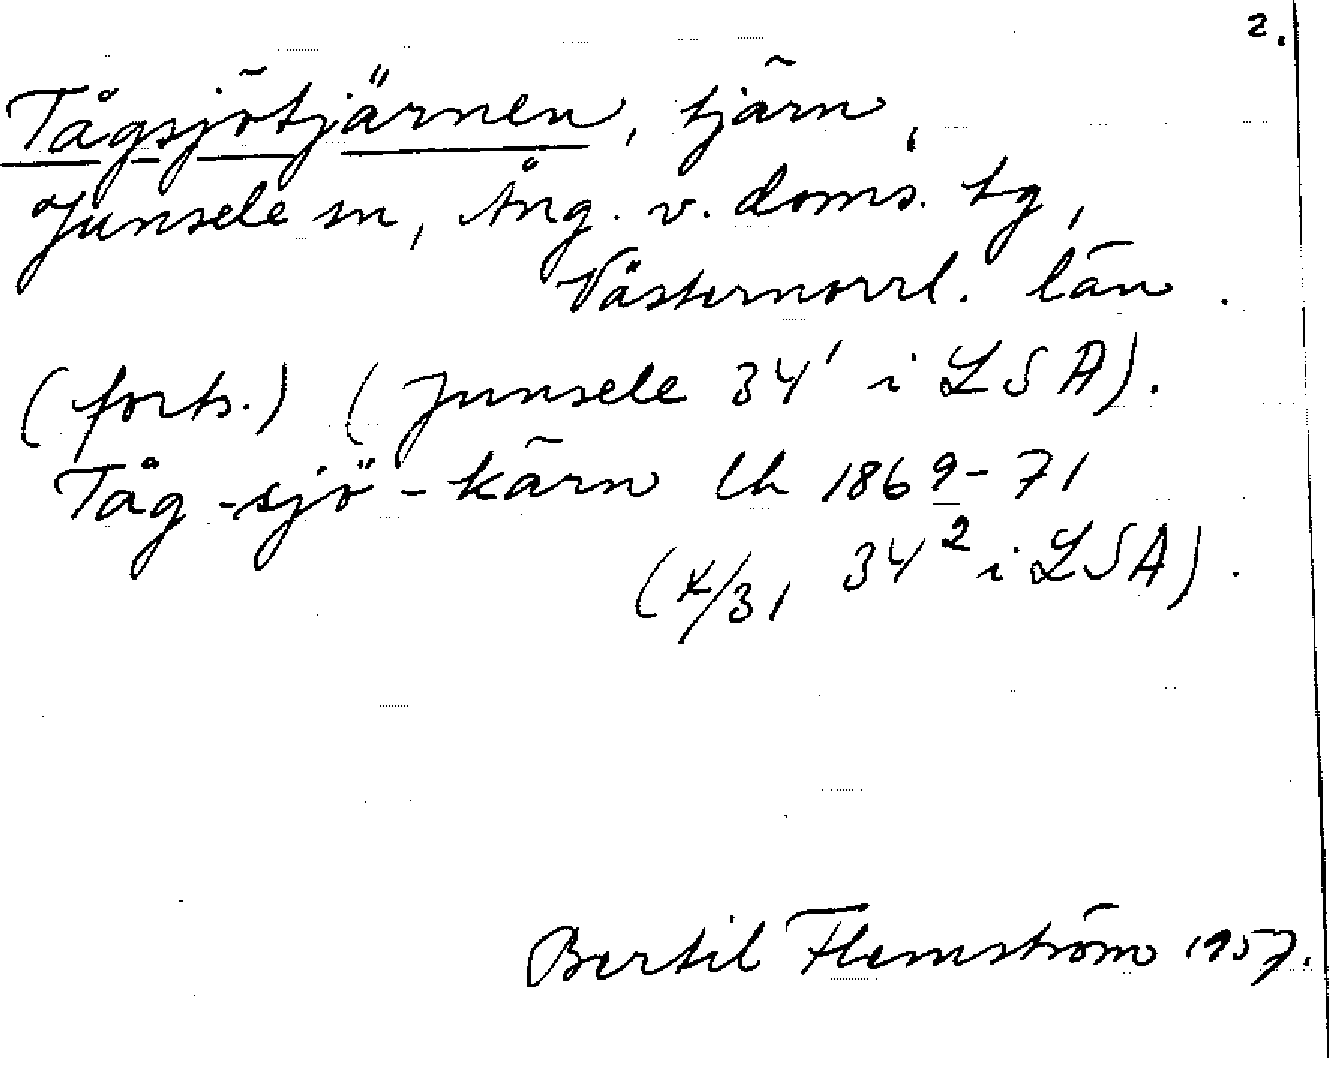 2.
Tågsjötjärnen, tjärn,
Junsele sn, Ång. v. doms. tg,
Västernorrl. län.
(forts.) (Junsele 34¹ i LSA).
Tåg-sjö-kärn lh 1869-71
(K/31, 34² i LSA).
Bertil Flemström 1957.